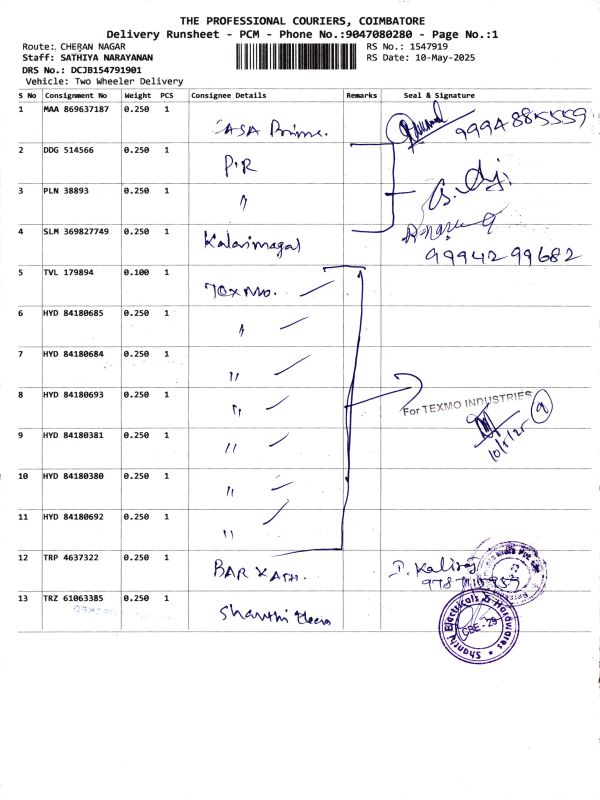 THE PROFESSIONAL COURIERS, COIMBATORE
Delivery Runsheet - PCM - Phone No.:9047080280 - Page No.:1
Route: CHERAN NAGAR RS No.: 1547919
Staff: SATHIYA NARAYANAN RS Date: 10-May-2025
DRS No.: DCJB154791901
Vehicle: Two Wheeler Delivery
S No Consignment No Weight PCS Consignee Details Remarks Seal & Signature
1 MAA 869637187 0.250 1 CASA Prime. 9994885559
2 DDG 514566 0.250 1 PIR
3 PLN 38893 0.250 1 "
4 SLM 369827749 0.250 1 Kalarimagal
9994299682
5 TVL 179894 0.100 1 Toxmo.
6 HYD 84180685 0.250 1 "
7 HYD 84180684 0.250 1 "
8 HYD 84180693 0.250 1 " For TEXMO INDUSTRIES
9 HYD 84180381 0.250 1 " 10/5/25
10 HYD 84180380 0.250 1 "
11 HYD 84180692 0.250 1 "
12 TRP 4637322 0.250 1 BAR KATH. D. Kaliraj
13 TRZ 61063385 0.250 1 Shanthi
Shanthi Electricals & Hardwares
CBE - 29